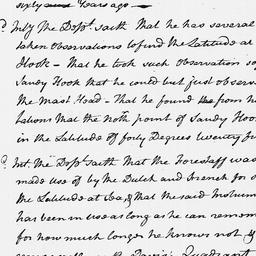 sixty some Years ago —
? Mly The Depst. saith That he has several
taken Observations to find the Latitude at
Hook – That he took such Observation so
Sandy Hook that he could but just observe
the Mast Head – That he found from h
lations that the North point of Sandy Hoo
in the Latitude of forty Degrees twenty f
? Int. The Depst. saith That the Forestaff was
made use of by the Dutch and French for o
the Latitude at Sea, & that the said Instrum
has been in use as long as he can remem
for how much longer he knows not
Davis's Quadrant